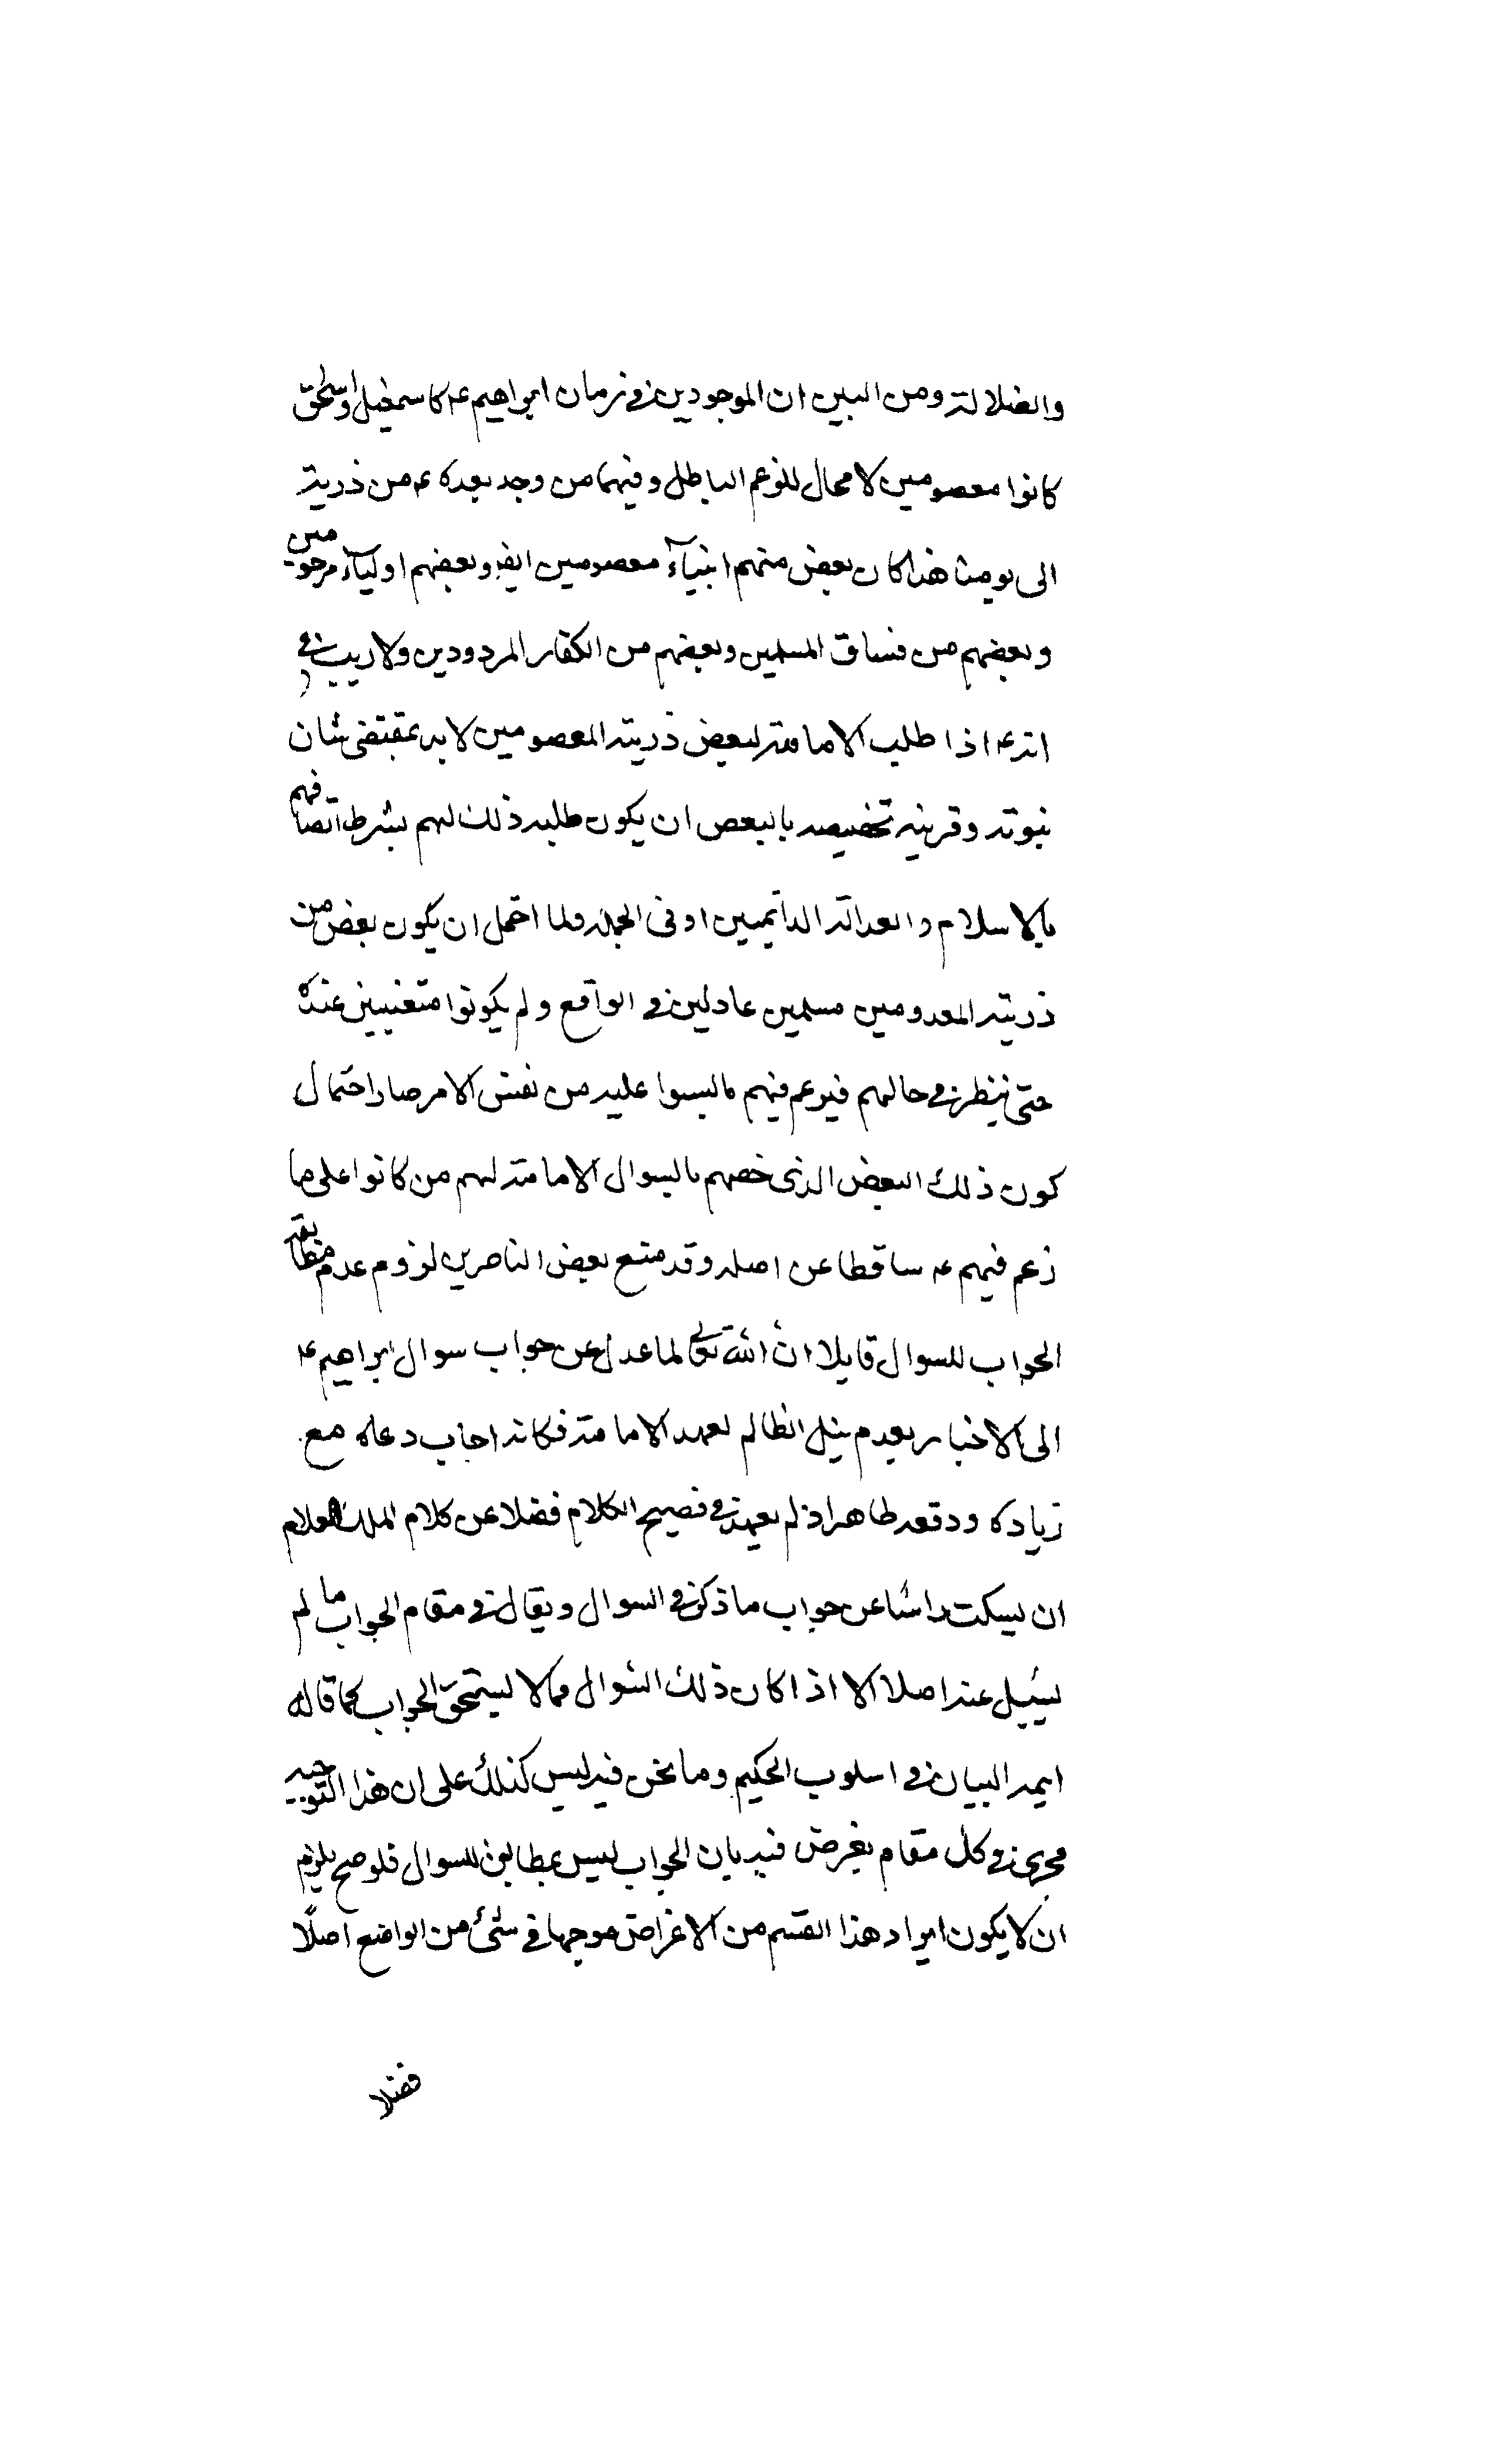 والضلالة ومن البين ان الموجودين في زمان ابراهيم ع كاسمعيل واسحق
كانوا معصومين لا مجال للزعم الباطل وفيهما من وجد بعده ع من ذرية
الى يومنا هذا كان بعض منهم انبيآء معصومين ايضا وبعضهم اوليآء مرحومين
وبعضهم من فساق المسلمين وبعضهم من الكفار المردودين ولا ريب في
انه ع اذا طلب الامامة لبعض ذريته المعصومين لابد بمقتضى شان
نبوته وقرينه تخصيصه بالبعض ان يكون طلبه ذلك لهم بشرط اتصافهم
بالاسلام والعدالة الدائميين او في الجملة ولما احتمل ان يكون بعض من
ذريته المعدومين مسلمين عادلين في الواقع ولم يكونوا متعينين عنده
حتى ينظر في حالهم فيزعم فيهم ما ليسوا عليه من نفس الامر صار احتمال
كون ذلك البعض الذى خصهم بالسوال الامامة لهم من كانوا على ما
زعم فيهم ع ساقطا عن اصله وقد منع بعض الناصرين لزوم عدم مطابقة
الجواب للسوال قايلا ان الله تعالى لما عدل عن جواب سوال ابراهيم ع
الى الاخبار بعدم نيل الظالم لعهد الامامة فكانه اجاب دعاه مع
زياده ودفعه ظاهر اذ لم يعهد في فصيح الكلام فضلا عن كلام الملك العلام
ان يسكت راسا عن جواب ما ذكر في السوال ويقال في مقام الجواب ما لم
يسئل عنه اصلا الا اذا كان ذلك السوال مما لا يستحق الجواب كما قاله
ايمه البيان في اسلوب الحكيم وما نحن فيه ليس كذلك على ان هذا التوجيه
مجرى في كل مقام يعرض فيه بان الجواب ليس بمطابق للسوال فلو صح يلزم
ان لا يكون ايراد هذا القسم من الاغراض موجها في شئ من المواضع اصلًا
فضلا